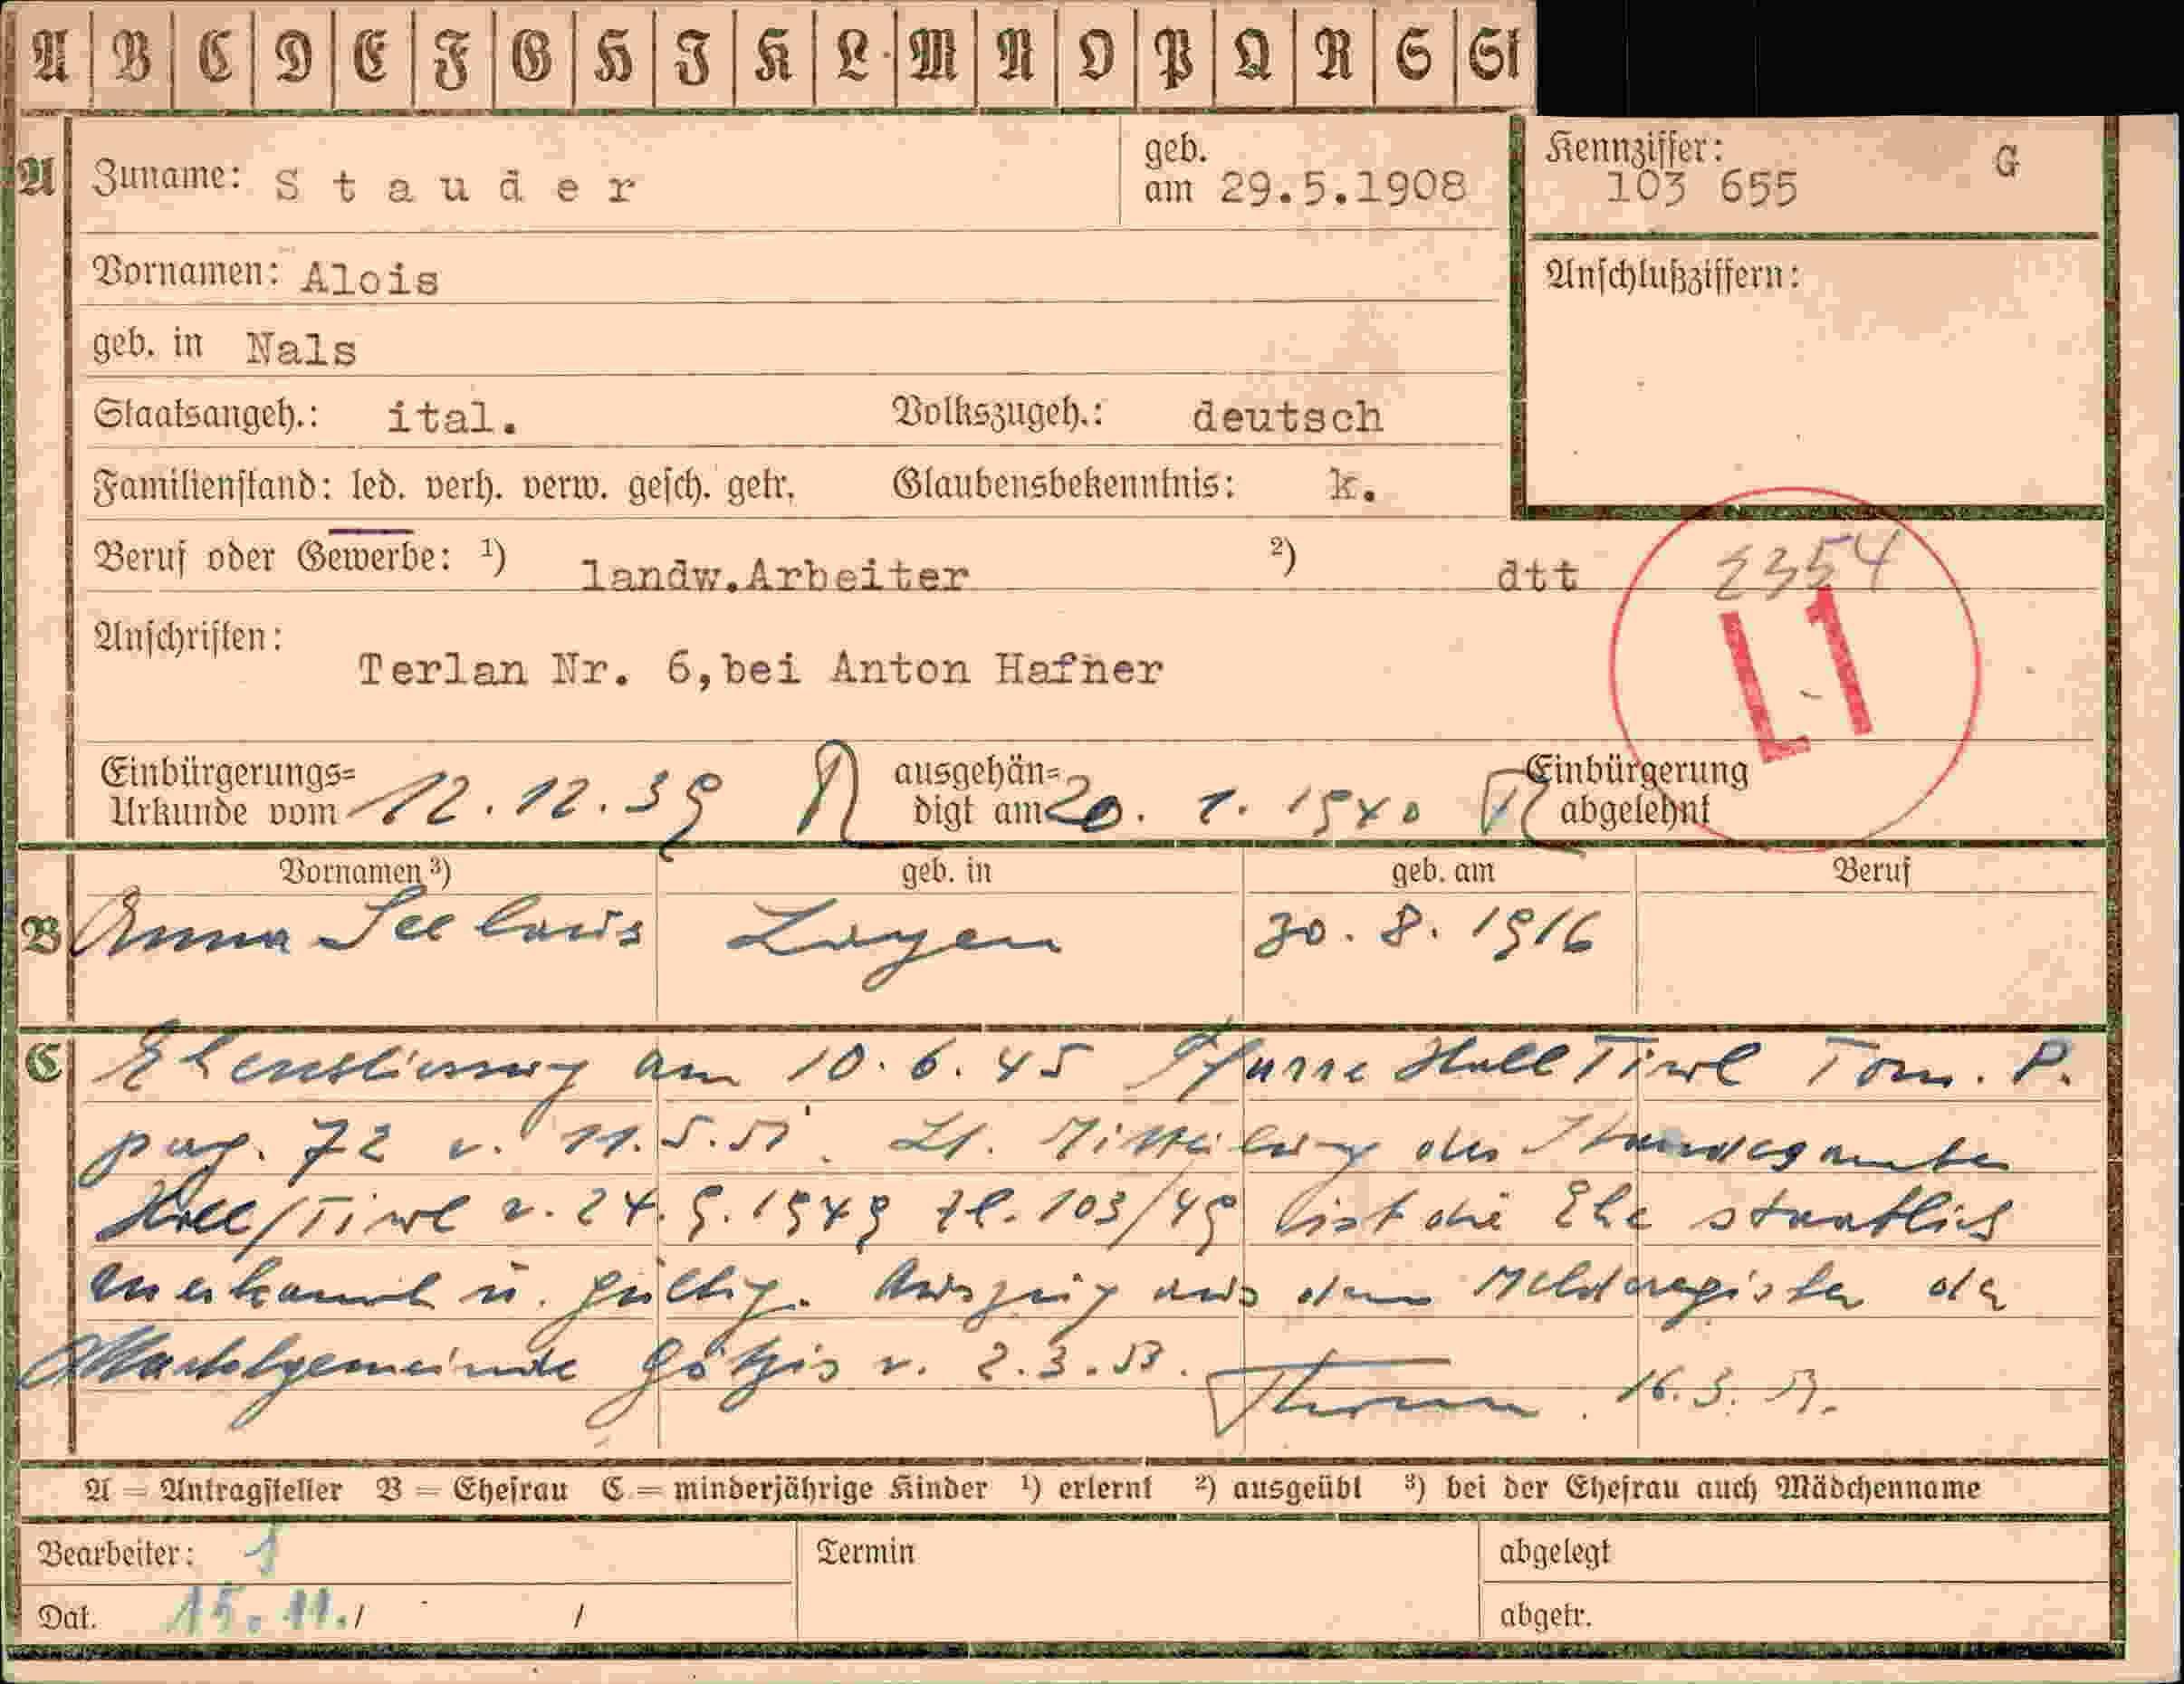 A B C D E F G H I K L M N O P Q R S St
A Zuname: Stauder geb. am 29.5.1908 Kennziffer: 103 655 G
Vornamen: Alois Anschlußziffern:
geb. in Nals
Staatsangeh.: ital. Volkszugeh.: deutsch
Familienstand: led. verh. verw. gesch. getr. Glaubensbekenntnis: k.
Beruf oder Gewerbe: 1) landw.Arbeiter 2) dtt 2354
L1
Anschriften:
Terlan Nr. 6,bei Anton Hafner
Einbürgerungs= ausgehän= Einbürgerung
Urkunde vom 12.12.39 digt am 20. 1. 1940 abgelehnt
Vornamen 3) geb. in geb. am Beruf
B Anna 30. 8. 1916
C Eheschliessung am 10. 6. 45 Pfarre Hall Tirol Tom. P.
pag. 72 v. 11.5.51. Lt. Mitteilung des Standesamtes
Hall/Tirol v. 24.9.1949 Zl. 103/49 ist die Ehe staatlich
anerkannt u. gültig. Auszug aus dem Melderegister der
Marktgemeinde Götzis v. 2.3.53.
A = Antragsteller B = Ehefrau C = minderjährige Kinder 1) erlernt 2) ausgeübt 3) bei der Ehefrau auch Mädchenname
Bearbeiter: 1 Termin abgelegt
Dat. 15.11./ / abgetr.